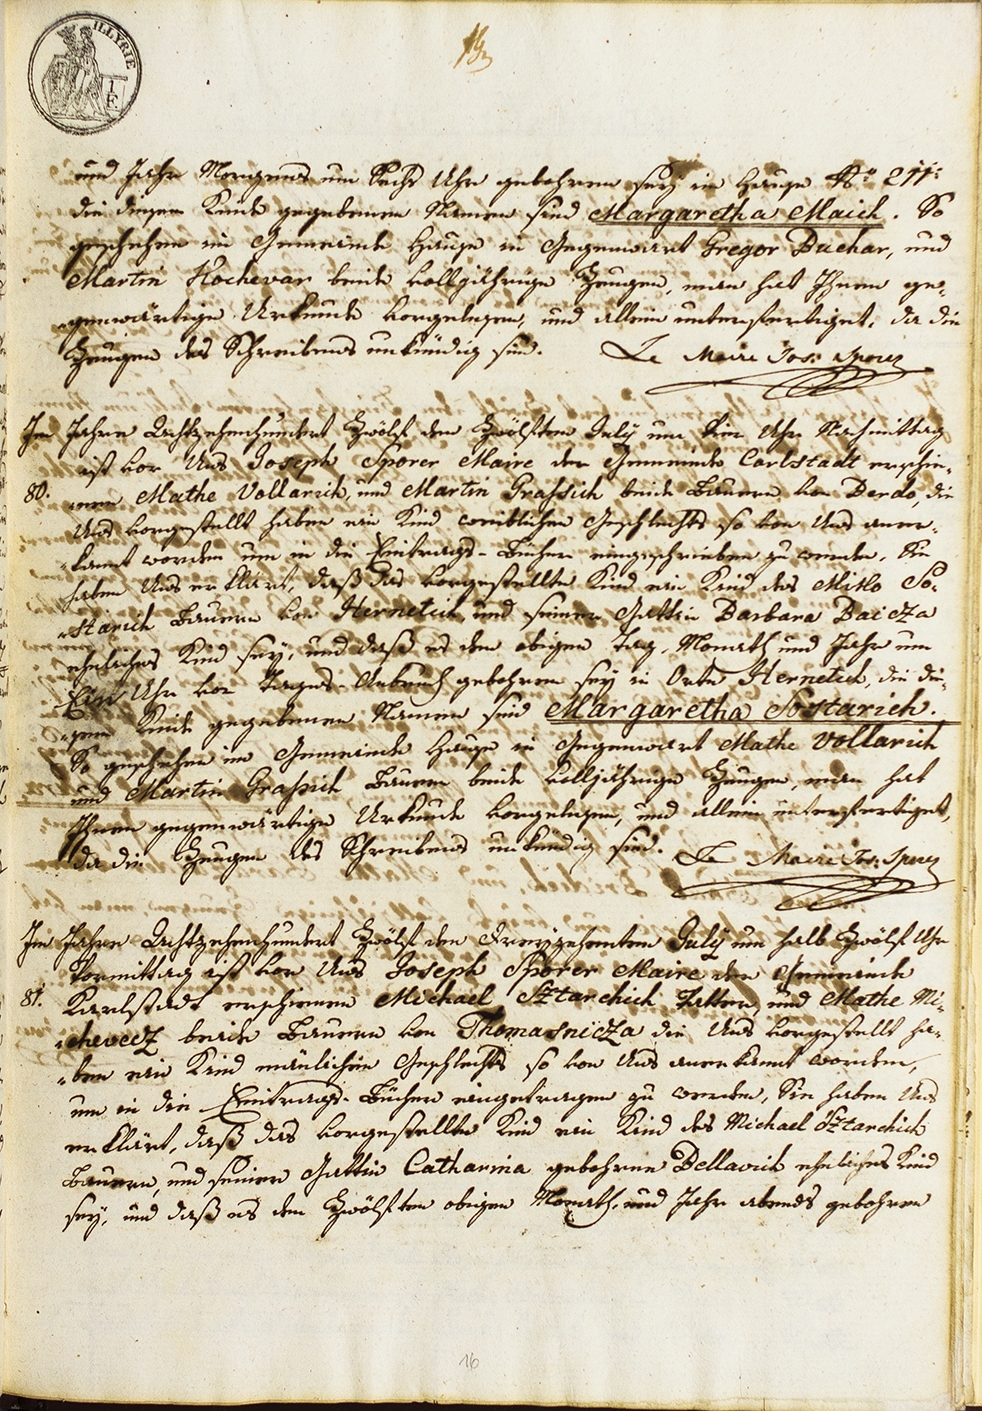 ILLYRIE
1 F.
und Jahr Morgens um Sechs Uhr gebohren sey im Hause No 211:
die diesem Kinde gegebenen Namen sind Margaretha Maich. So
geschehen im Gemeinde Hause in Gegenwart Gregor Puchar, und
Martin Kochevar beide volljährige Zeugen, man hat Ihnen ge-
-genwärtige Urkunde vorgelesen, und allein unterfertiget, da die
Zeugen des Schreibens unkündig sind. Le Maire Jos: Sporer
Im Jahre Achtzehenhundert Zwölf den Zwölften July um vier Uhr Nachmittag
ist vor Uns Joseph Sporer Maire der Gemeinde Carlstadt erschie-
80. -nen Mathe Vollarich, und Martin Grassich beide Bauern von Derdo, die
Uns vorgestellt haben ein Kind weiblichen Geschlechts so von Uns aner-
-kannt worden um in die Eintrags-Bücher eingeschrieben zu werden. Sie
haben Uns erklärt, daß das vorgestellte Kind ein Kind des Misko So-
-starich Bauern von Hernetich und seiner Gattin Barbara Baicza
eheliches Kind sey, und daß es den obigen Tag, Monath und Jahr um
Ein Uhr vor Tages-Anbruch gebohren sey in Orte Hernetich, die die-
-sem Kinde gegebenen Namen sind Margaretha Sostarich.
So geschehen im Gemeinde Hause in Gegenwart Mathe Vollarich
und Martin Grassich Bauern beide volljährige Zeugen, man hat
Ihnen gegenwärtige Urkunde vorgelesen, und allein unterfertiget,
da die Zeugen des Schreibens unkündig sind. Le Maire Jos: Sporer
Im Jahre Achtzehenhundert Zwölf den Dreyzehenten July um halb Zwölf Uhr
Vormittag ist vor Uns Joseph Sporer Maire der Gemeinde
81. Karlstadt erschienen Michael Sztarchich Vatter, und Mathe Mi-
-chevecz beide Bauern von Thomasnicza die Uns vorgestellt ha-
-ben ein Kind mänlichen Geschlechts so von Uns anerkannt worden,
um in die Eintrags-Bücher eingetragen zu werden, Sie haben Uns
erklärt, daß das vorgestellte Kind ein Kind des Michael Sztarchich
Bauern, und seiner Gattin Catharina gebohrne Bellavich eheliches Kind
sey, und daß es den Zwölften obigen Monath, und Jahr abends gebohren
16